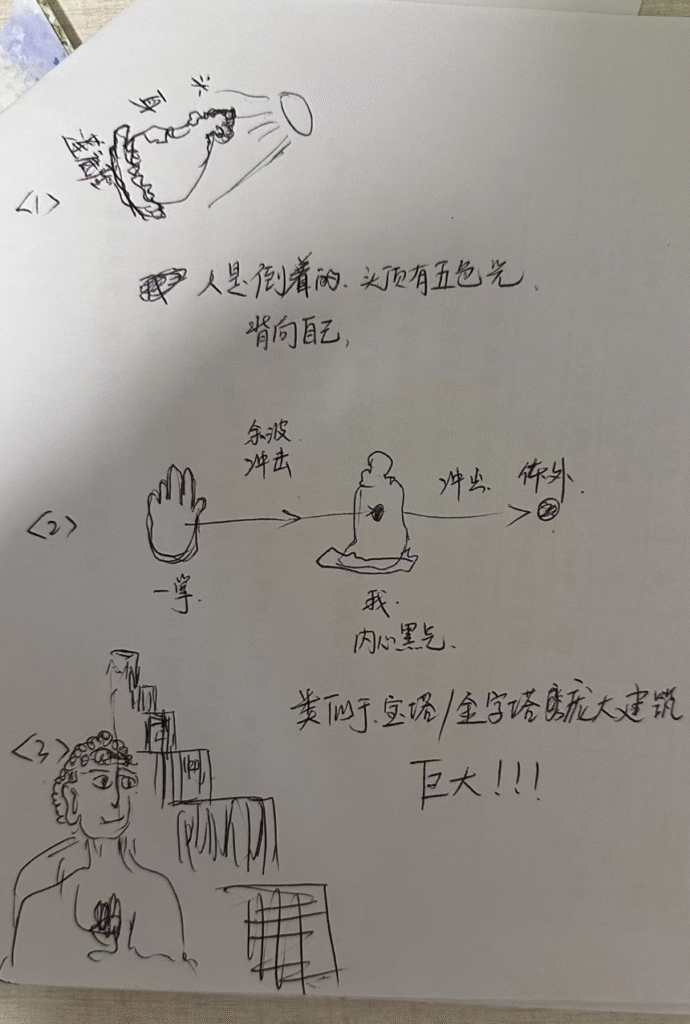 头
身
莲花
<1>
人是倒着的、头顶有五色光、
背向自己,
余波
冲击
冲出 体外.
<2>
一掌.
我.
内心黑点.
<3>
类似于宝塔/金字塔庞大建筑
巨大!!!